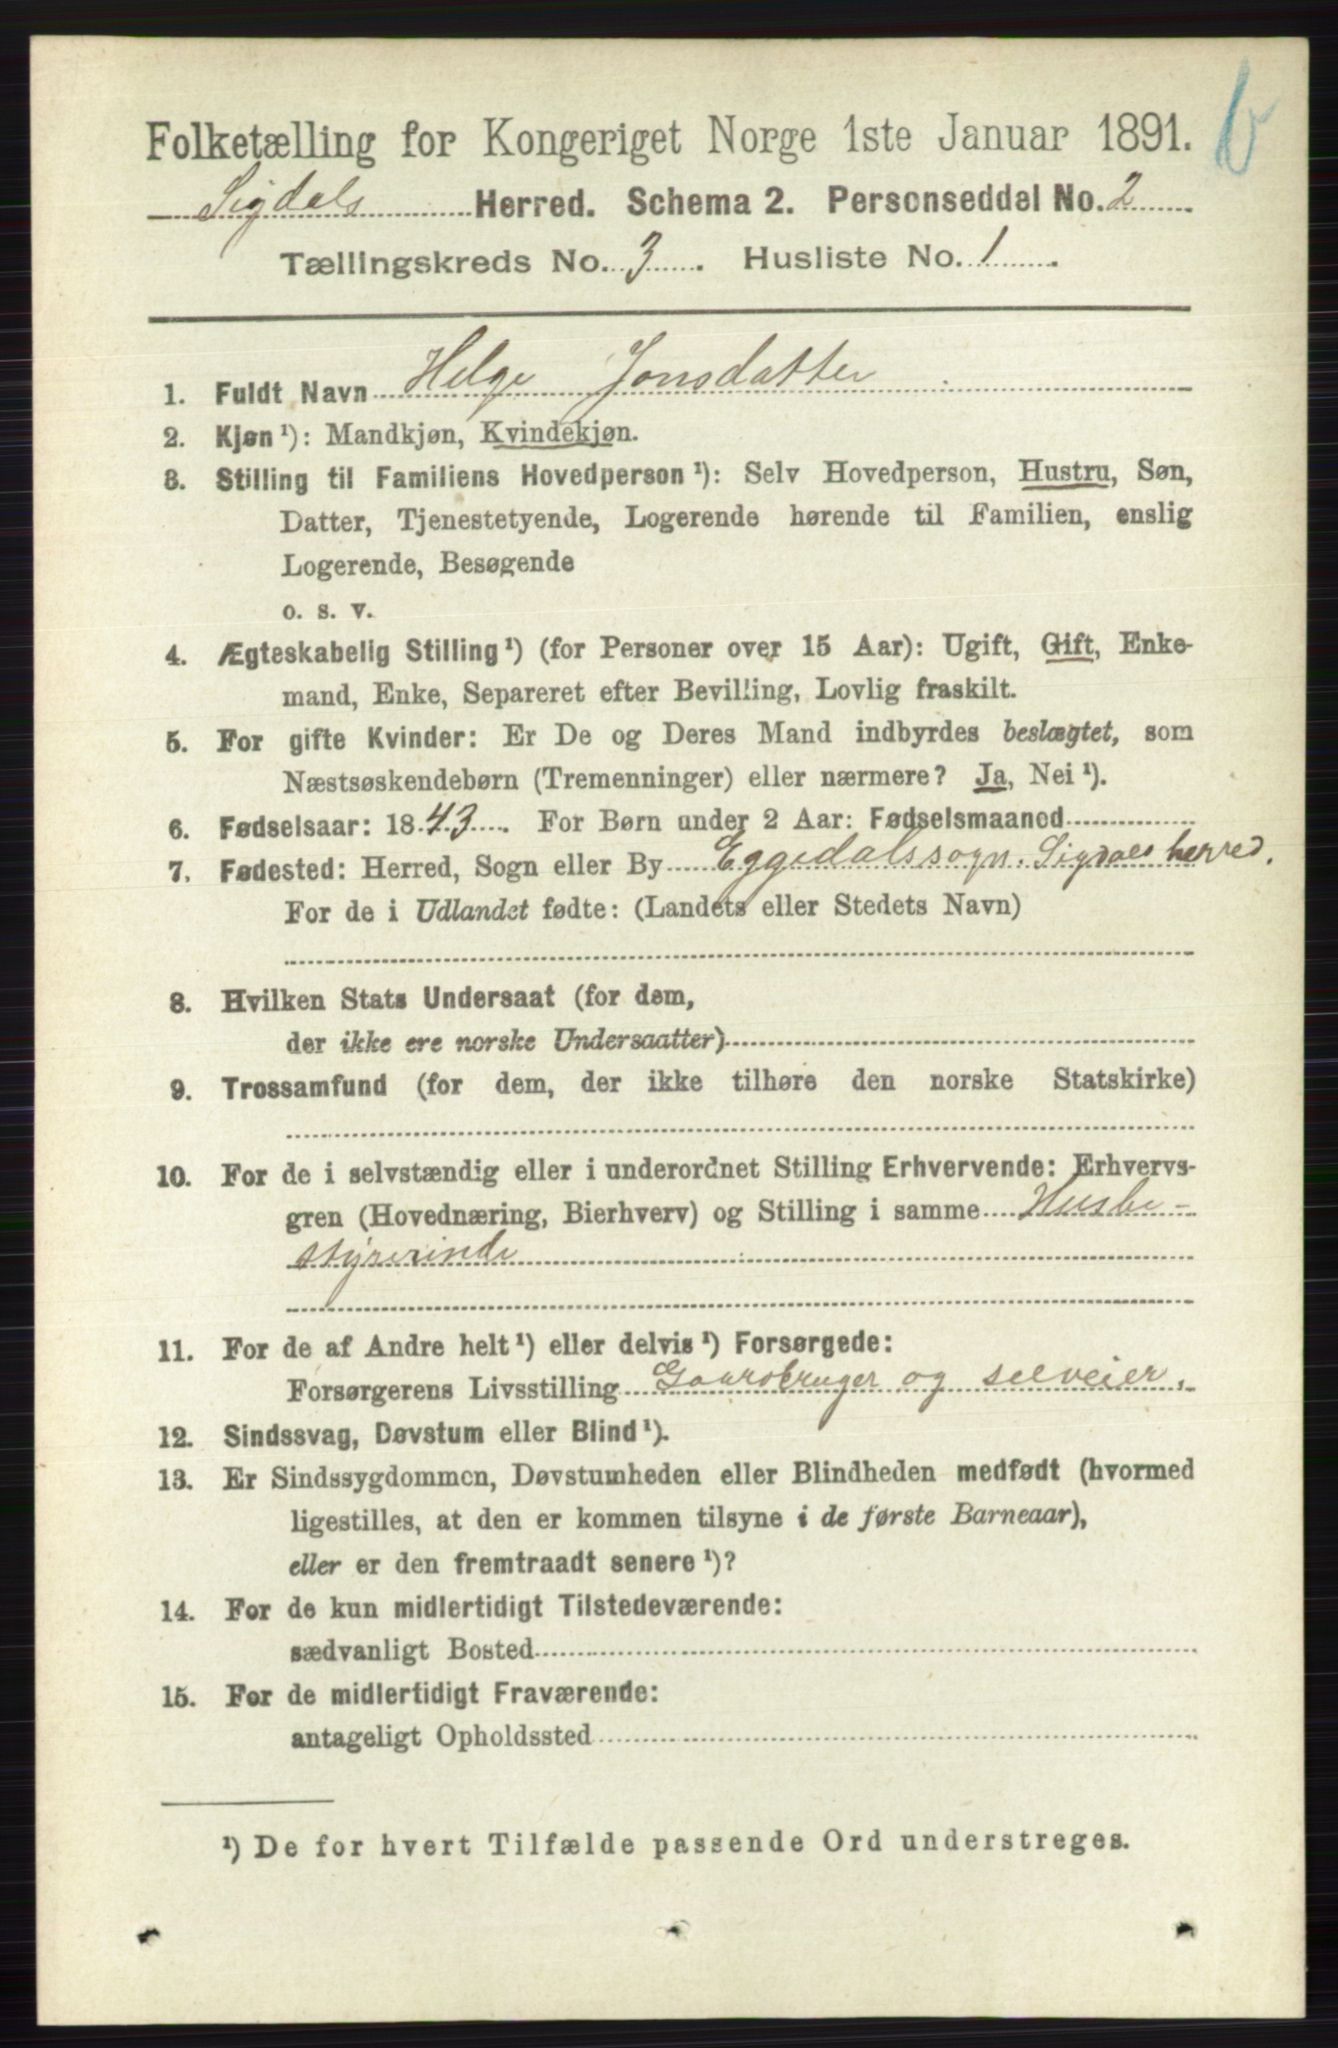 Folketælling for Kongeriget Norge 1ste Januar 1891.
Sigdals Herred. Schema 2. Personseddel No. 2
Tællingskreds No. 3. Husliste No. 1.
1. Fuldt Navn Helge Jonsdatter
2. Kjøn ¹): Mandkjøn, Kvindekjøn.
3. Stilling til Familiens Hovedperson ¹): Selv Hovedperson, Hustru, Søn,
Datter, Tjenestetyende, Logerende hørende til Familien, enslig
Logerende, Besøgende
o. s. v.
4. Ægteskabelig Stilling ¹) (for Personer over 15 Aar): Ugift, Gift, Enke-
mand, Enke, Separeret efter Bevilling, Lovlig fraskilt.
5. For gifte Kvinder: Er De og Deres Mand indbyrdes beslægtet, som
Næstsøskendebørn (Tremenninger) eller nærmere? Ja, Nei ¹).
6. Fødselsaar: 1843. For Børn under 2 Aar: Fødselsmaaned
7. Fødested: Herred, Sogn eller By Eggedals sogn. Sigdals herred.
For de i Udlandet fødte: (Landets eller Stedets Navn)
8. Hvilken Stats Undersaat (for dem,
der ikke ere norske Undersaatter)
9. Trossamfund (for dem, der ikke tilhøre den norske Statskirke)
10. For de i selvstændig eller i underordnet Stilling Erhvervende: Erhvervs-
gren (Hovednæring, Bierhverv) og Stilling i samme Husbe-
styrerinde
11. For de af Andre helt ¹) eller delvis ¹) Forsørgede:
Forsørgerens Livsstilling Gaardbruger og selveier,
12. Sindssvag, Døvstum eller Blind ¹).
13. Er Sindssygdommen, Døvstumheden eller Blindheden medfødt (hvormed
ligestilles, at den er kommen tilsyne i de første Barneaar),
eller er den fremtraadt senere ¹)?
14. For de kun midlertidigt Tilstedeværende:
sædvanligt Bosted
15. For de midlertidigt Fraværende:
antageligt Opholdssted
¹) De for hvert Tilfælde passende Ord understreges.